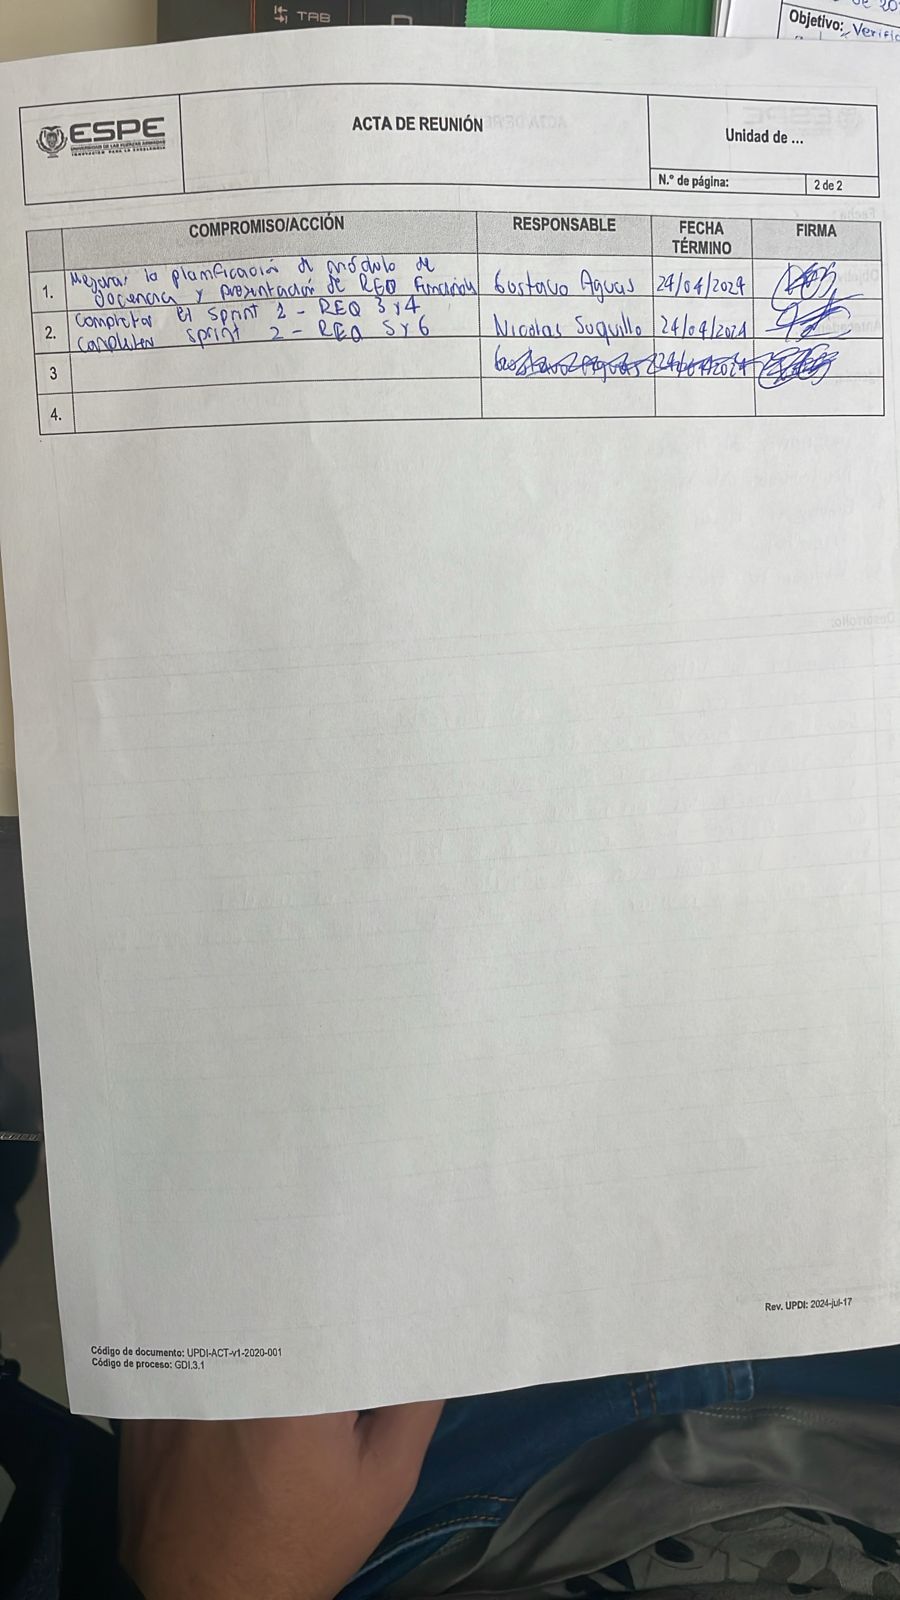 TAB
de 20
Objetivo: Verific
ESPE
UNIVERSIDAD DE LAS FUERZAS ARMADAS
INNOVACIÓN PARA LA EXCELENCIA
ACTA DE REUNIÓN
Unidad de ...
N.° de página:
2 de 2
COMPROMISO/ACCIÓN
RESPONSABLE
FECHA TÉRMINO
FIRMA
1.
Mejorar la planificación de módulo de
docencia y presentación de REQ Funcionals
Gustavo Aguas
24/04/2024
2.
Completar el Sprint 2 - REQ 3 y 4
Completar Sprint 2 - REQ 5 y 6
Nicolas Suquillo
24/04/2024
3
Gustavo Aguas
24/04/2024
4.
Rev. UPDI: 2024-jul-17
Código de documento: UPDI-ACT-v1-2020-001
Código de proceso: GDI.3.1